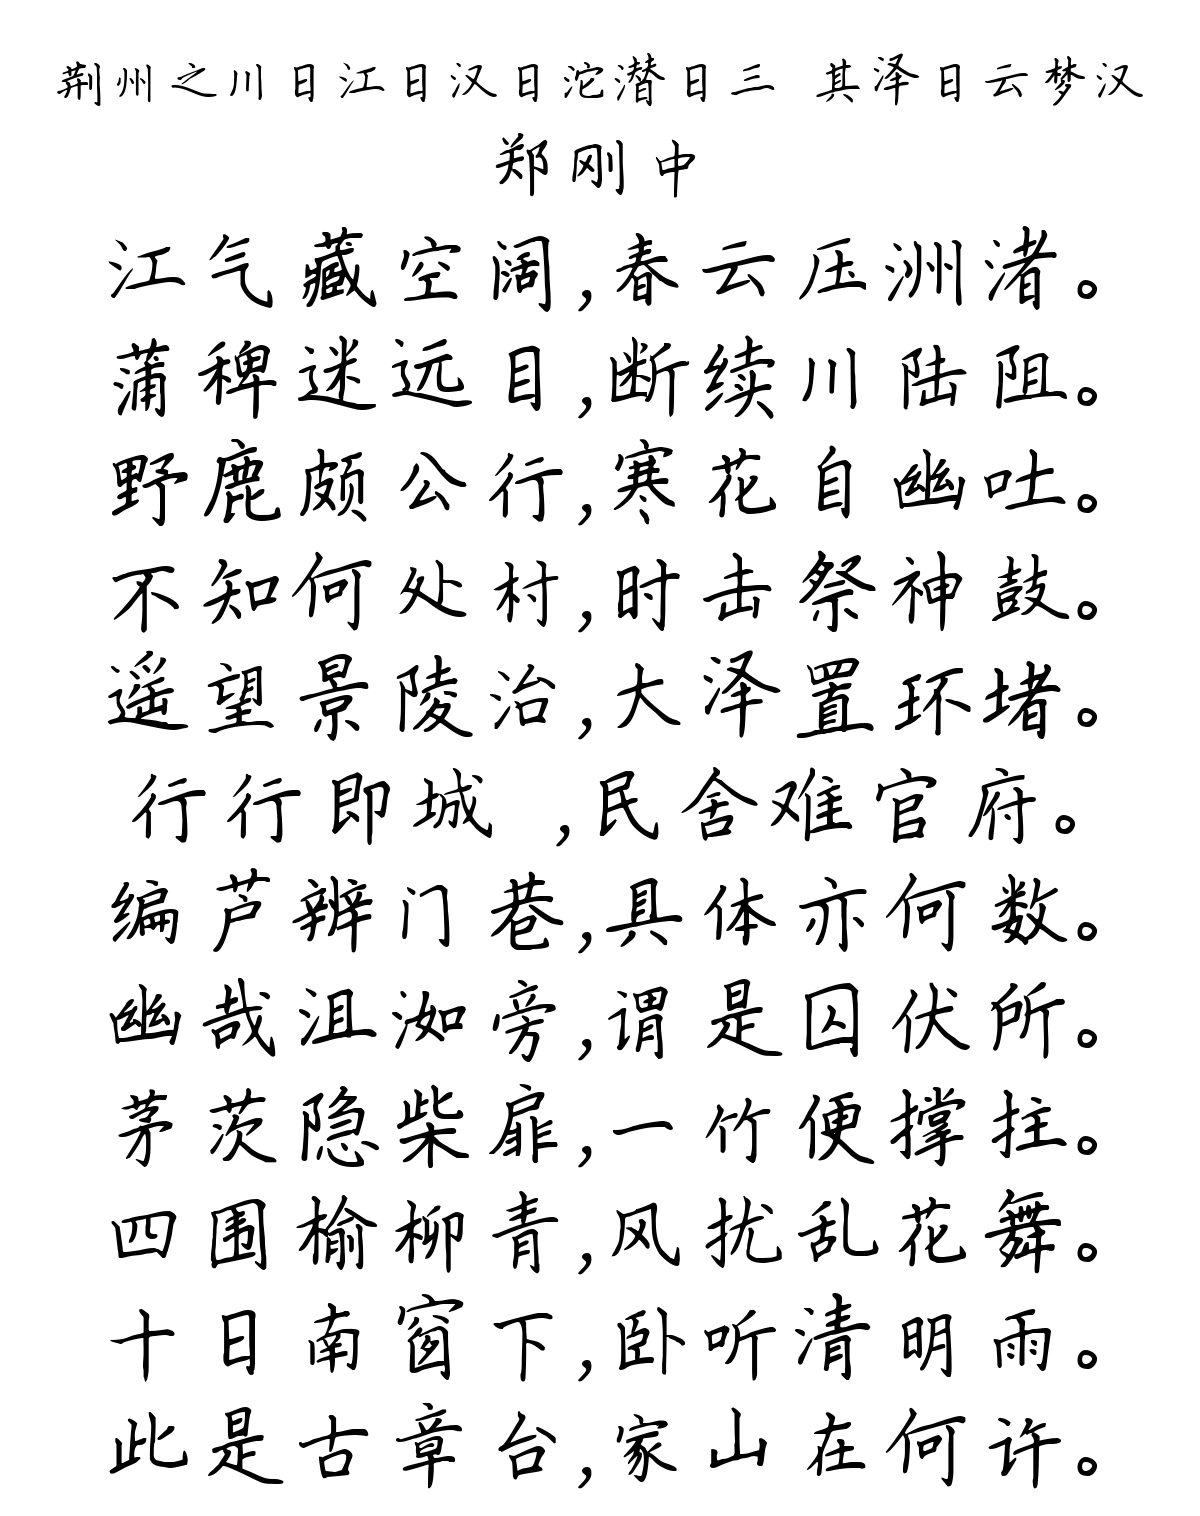 荆州之川日江日汉日沱潜日三 其泽日云梦汉
郑刚中
江气藏空阔,春云压洲渚。
蒲稗迷远目,断续川陆阻。
野鹿颇公行,寒花自幽吐。
不知何处村,时击祭神鼓。
遥望景陵治,大泽置环堵。
行行即城 ,民舍难官府。
编芦辨门巷,具体亦何数。
幽哉沮洳旁,谓是囚伏所。
茅茨隐柴扉,一竹便撑拄。
四围榆柳青,风扰乱花舞。
十日南窗下,卧听清明雨。
此是古章台,家山在何许。